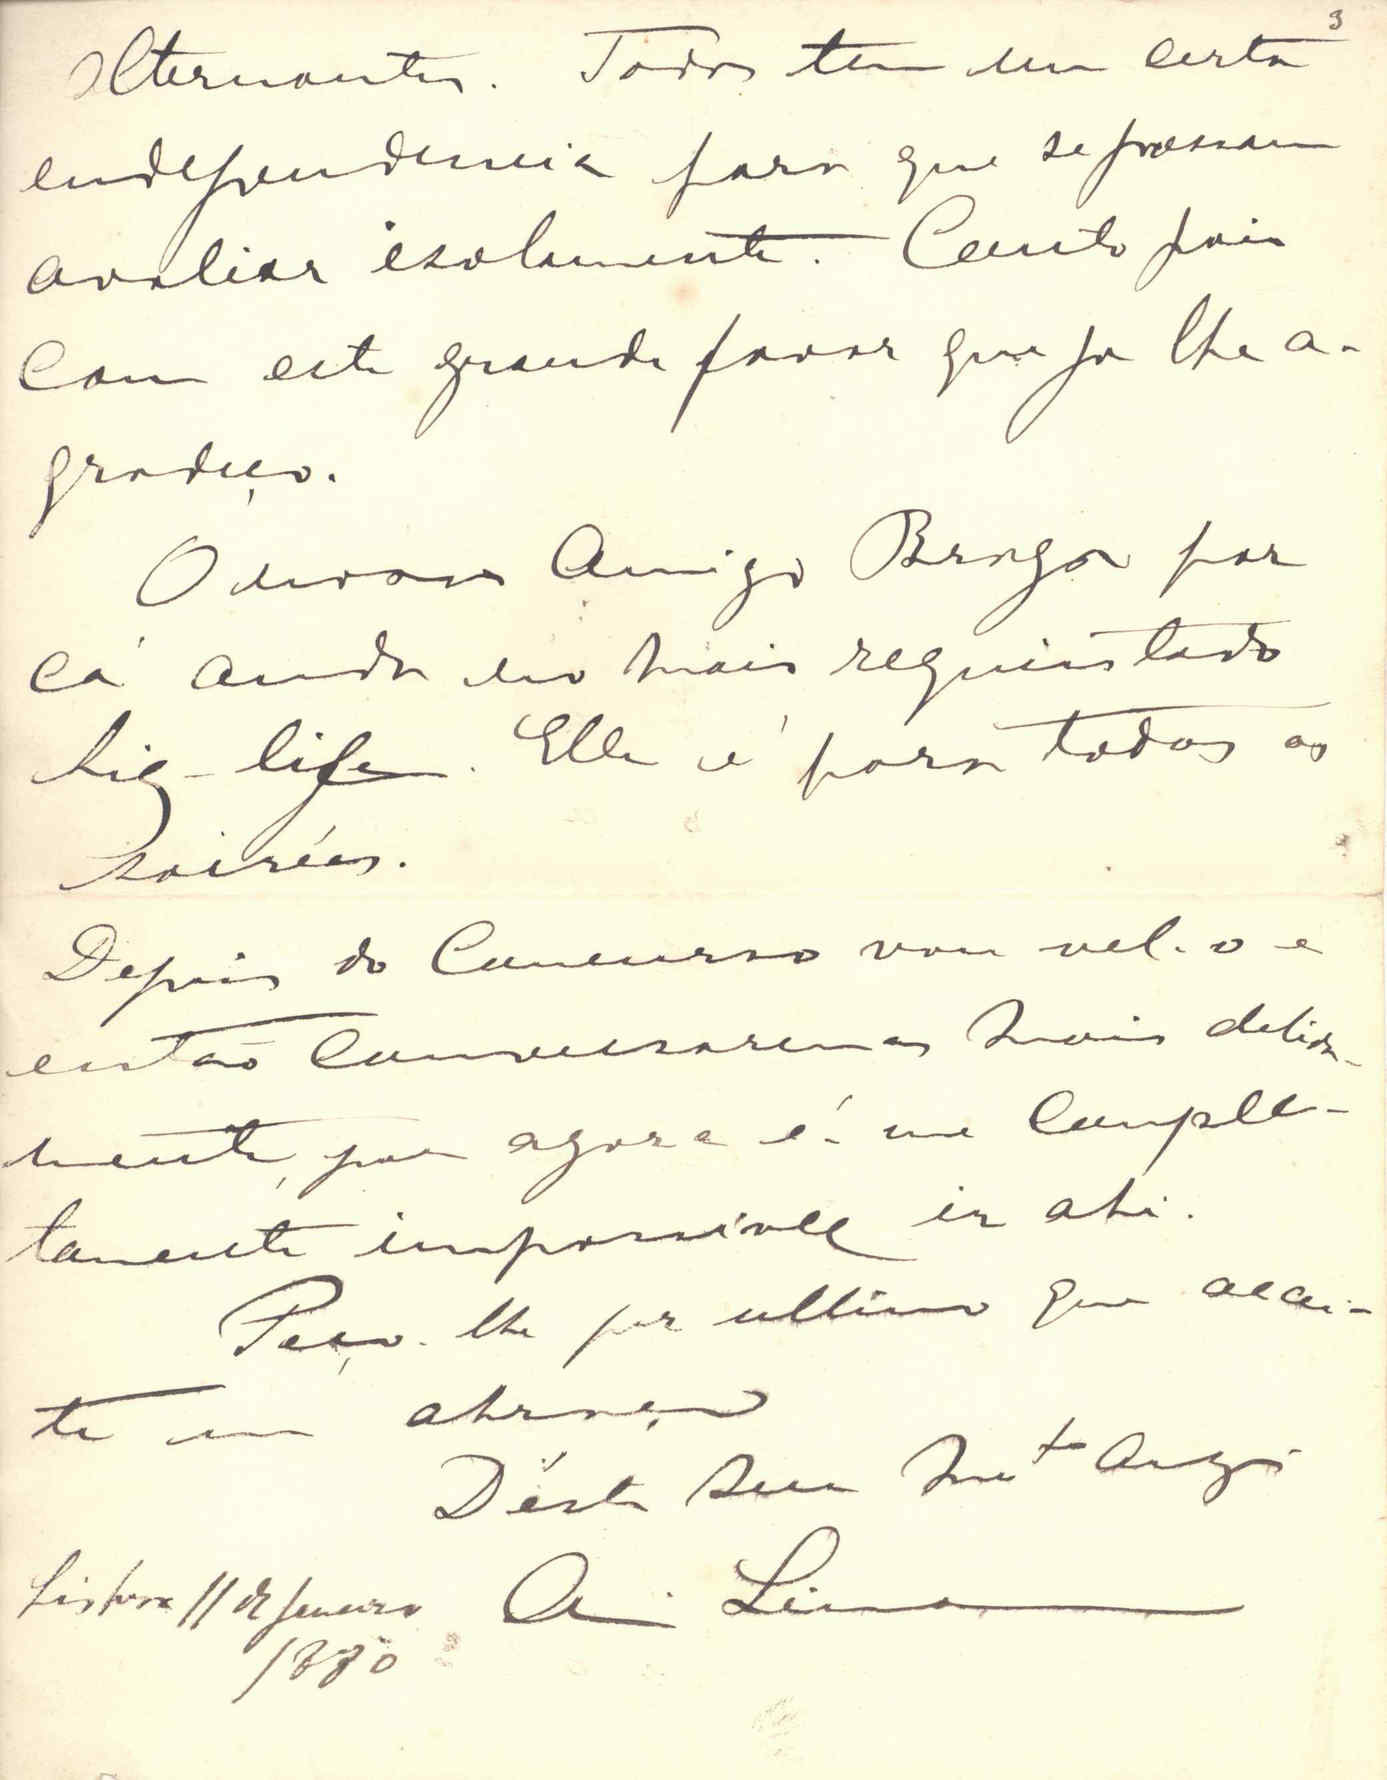 3
alternantes. Todos tem um certa
endependencia para que se possam
avaliar isolamente. Conto pois
com este grande favor que ja lhe a-
gradeço.
O nosso Amigo Braga por
cá anda no mais requintado
hig-life. Elle é para todas as
soirées.
Depois do Concurso vou vel-o e
então conversaremos mais detida-
mente, pois agora é-me comple-
tamente impossivel ir ahi.
Peço-lhe por ultimo que accei-
te um abraço
D'éste seu mto Amgo
A. Lima
Lisboa 11 de Janeiro
1880